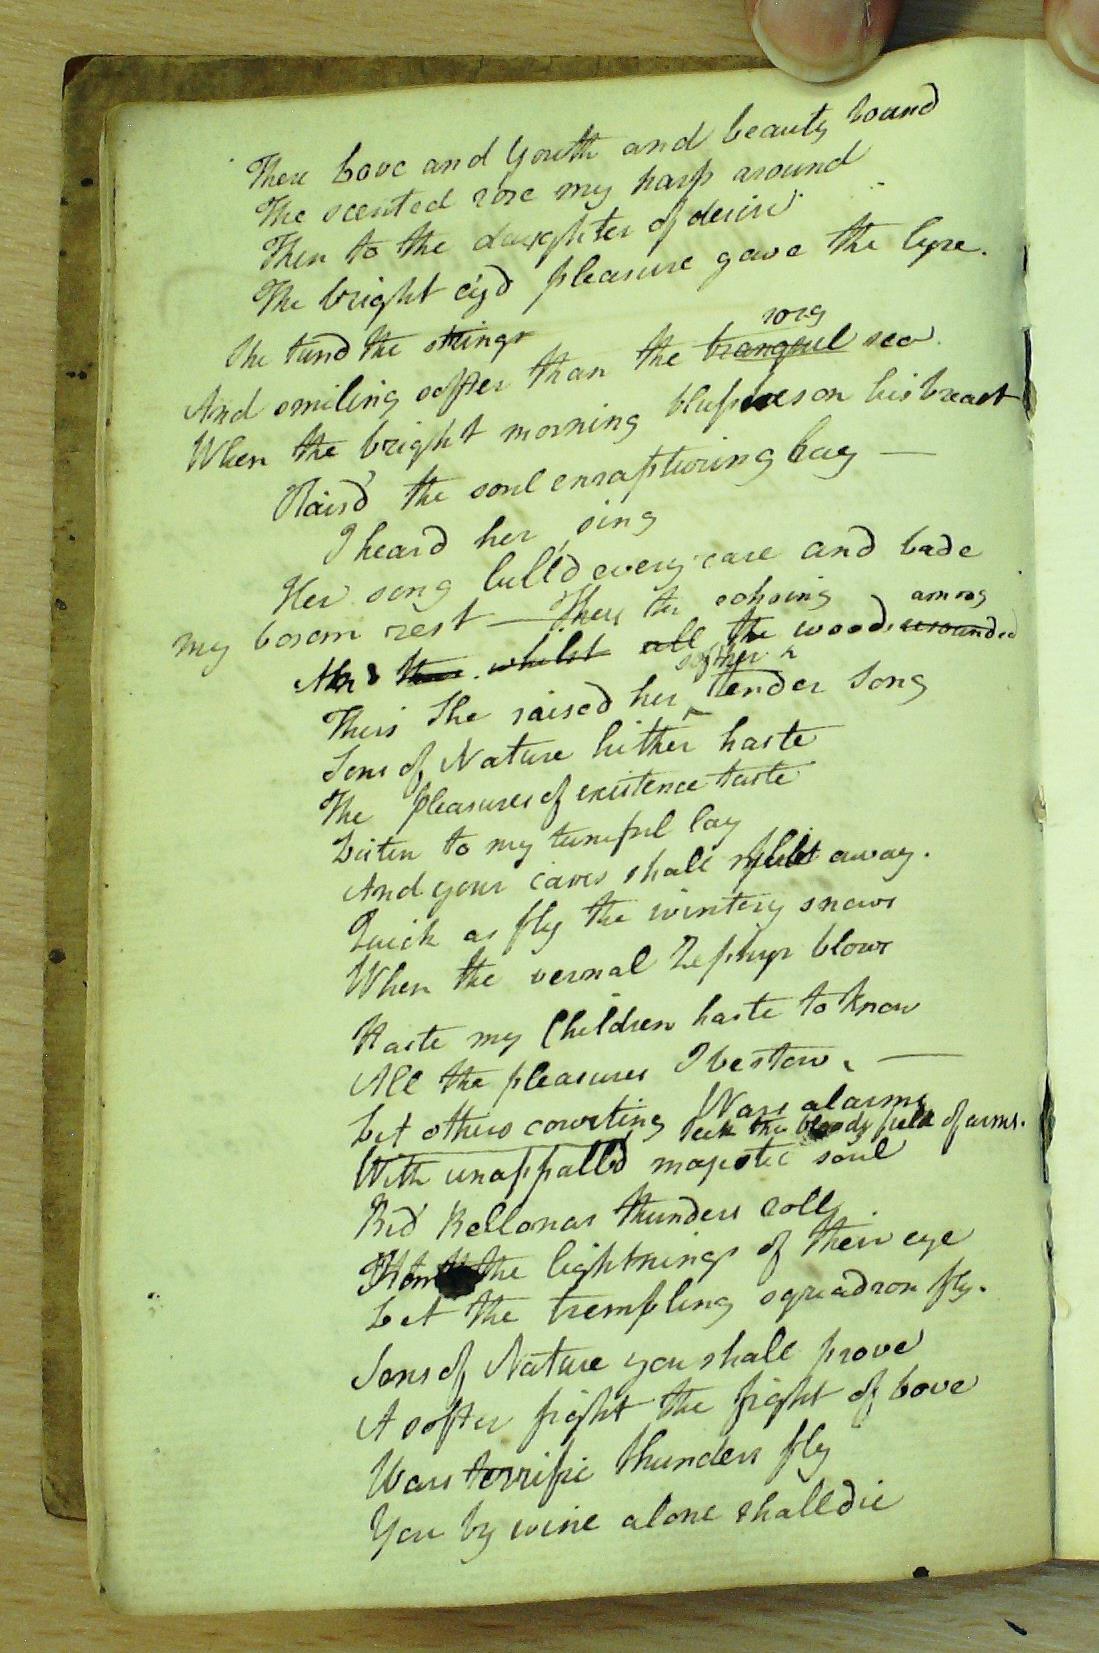 There Love and Youth and beauty bound
The scented rose my harp around
Then to the daughter of desire
The bright ey'd pleasure gave the lyre.
She tund the strings
rosy
And smiling softer than the tranquil sea
When the bright morning blushes on his breast
Raisd the soul enrapturing Lay —
I heard her sing
Her song lulld every care and bade
my bosom rest — Thus the echoing among
And thus whilst all the woods resounded
softer
Thus She raised her tender Song
Sons of Nature hither haste
The pleasures of existence taste
Listen to my tuneful lay
And your cares shall away.
Quick as fly the wintery snows
When the vernal Zephyr blows
Haste my Children haste to know
All the pleasures I bestow. —
Let others courting Wars alarms
Seek the bloody field of arms.
With unappalld majestic soul
Bid Bellonas thunders roll
From the lightnings of their eye
Let the trembling squadron fly.
Sons of Nature you shall prove
A softer fight the fight of Love
Wars terrific thunders fly
You by wine alone shall die